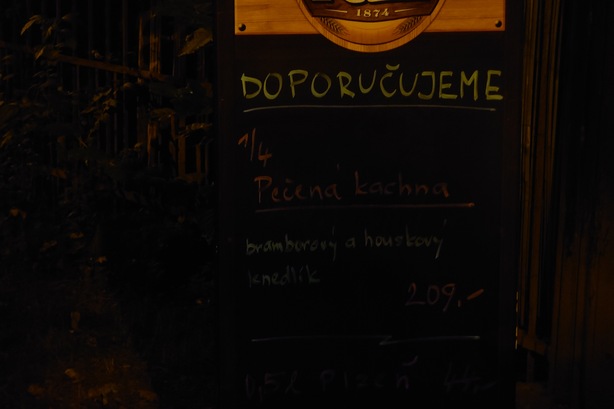 1874
DOPORUČUJEME
1/4
Pečená kachna
bramborový a houskový
knedlík
209.-
0,5l Plzeň